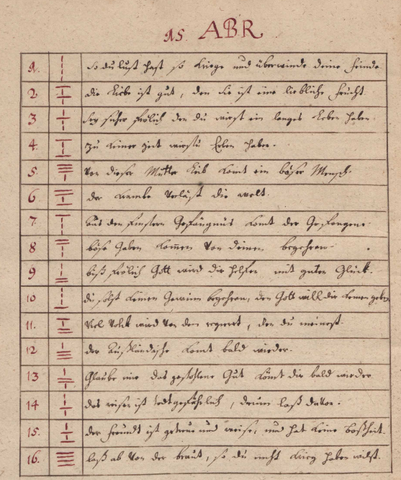 15 ABR
1. so du lust hast so kriege und überwinde deine feinde
2. die liebe ist gut, den sie ist eine liebliche frucht
3 frölich den du wirst ein langes leben haben.
4. Zu keiner Zeit wirstu Erben haben.
5. Von dieser Mutter Leib komt ein böser Mensch.
6. der Kranke verläst die welt.
7 aus den finstern Gefängnüs komt der Gefangene.
8 böse kommen von deinen begehren.
9 biß frölich Gott wird dir helfen mit guten Glück.
10 du solst keinen Gewinn begehren, den Gott will dir keinen geben
11. Viel Volk wird von den regiert, den du meinest.
12 der Ausländische komt bald wieder.
13 Glaube mir das gestohlene Gut komt dir bald wieder
14 das reisen ist gefährlich, drum laß davon.
15. der freundt ist getreu und weise, und hat keine boßheit.
16. laß ab von der braut, so du nicht krieg haben wilst.